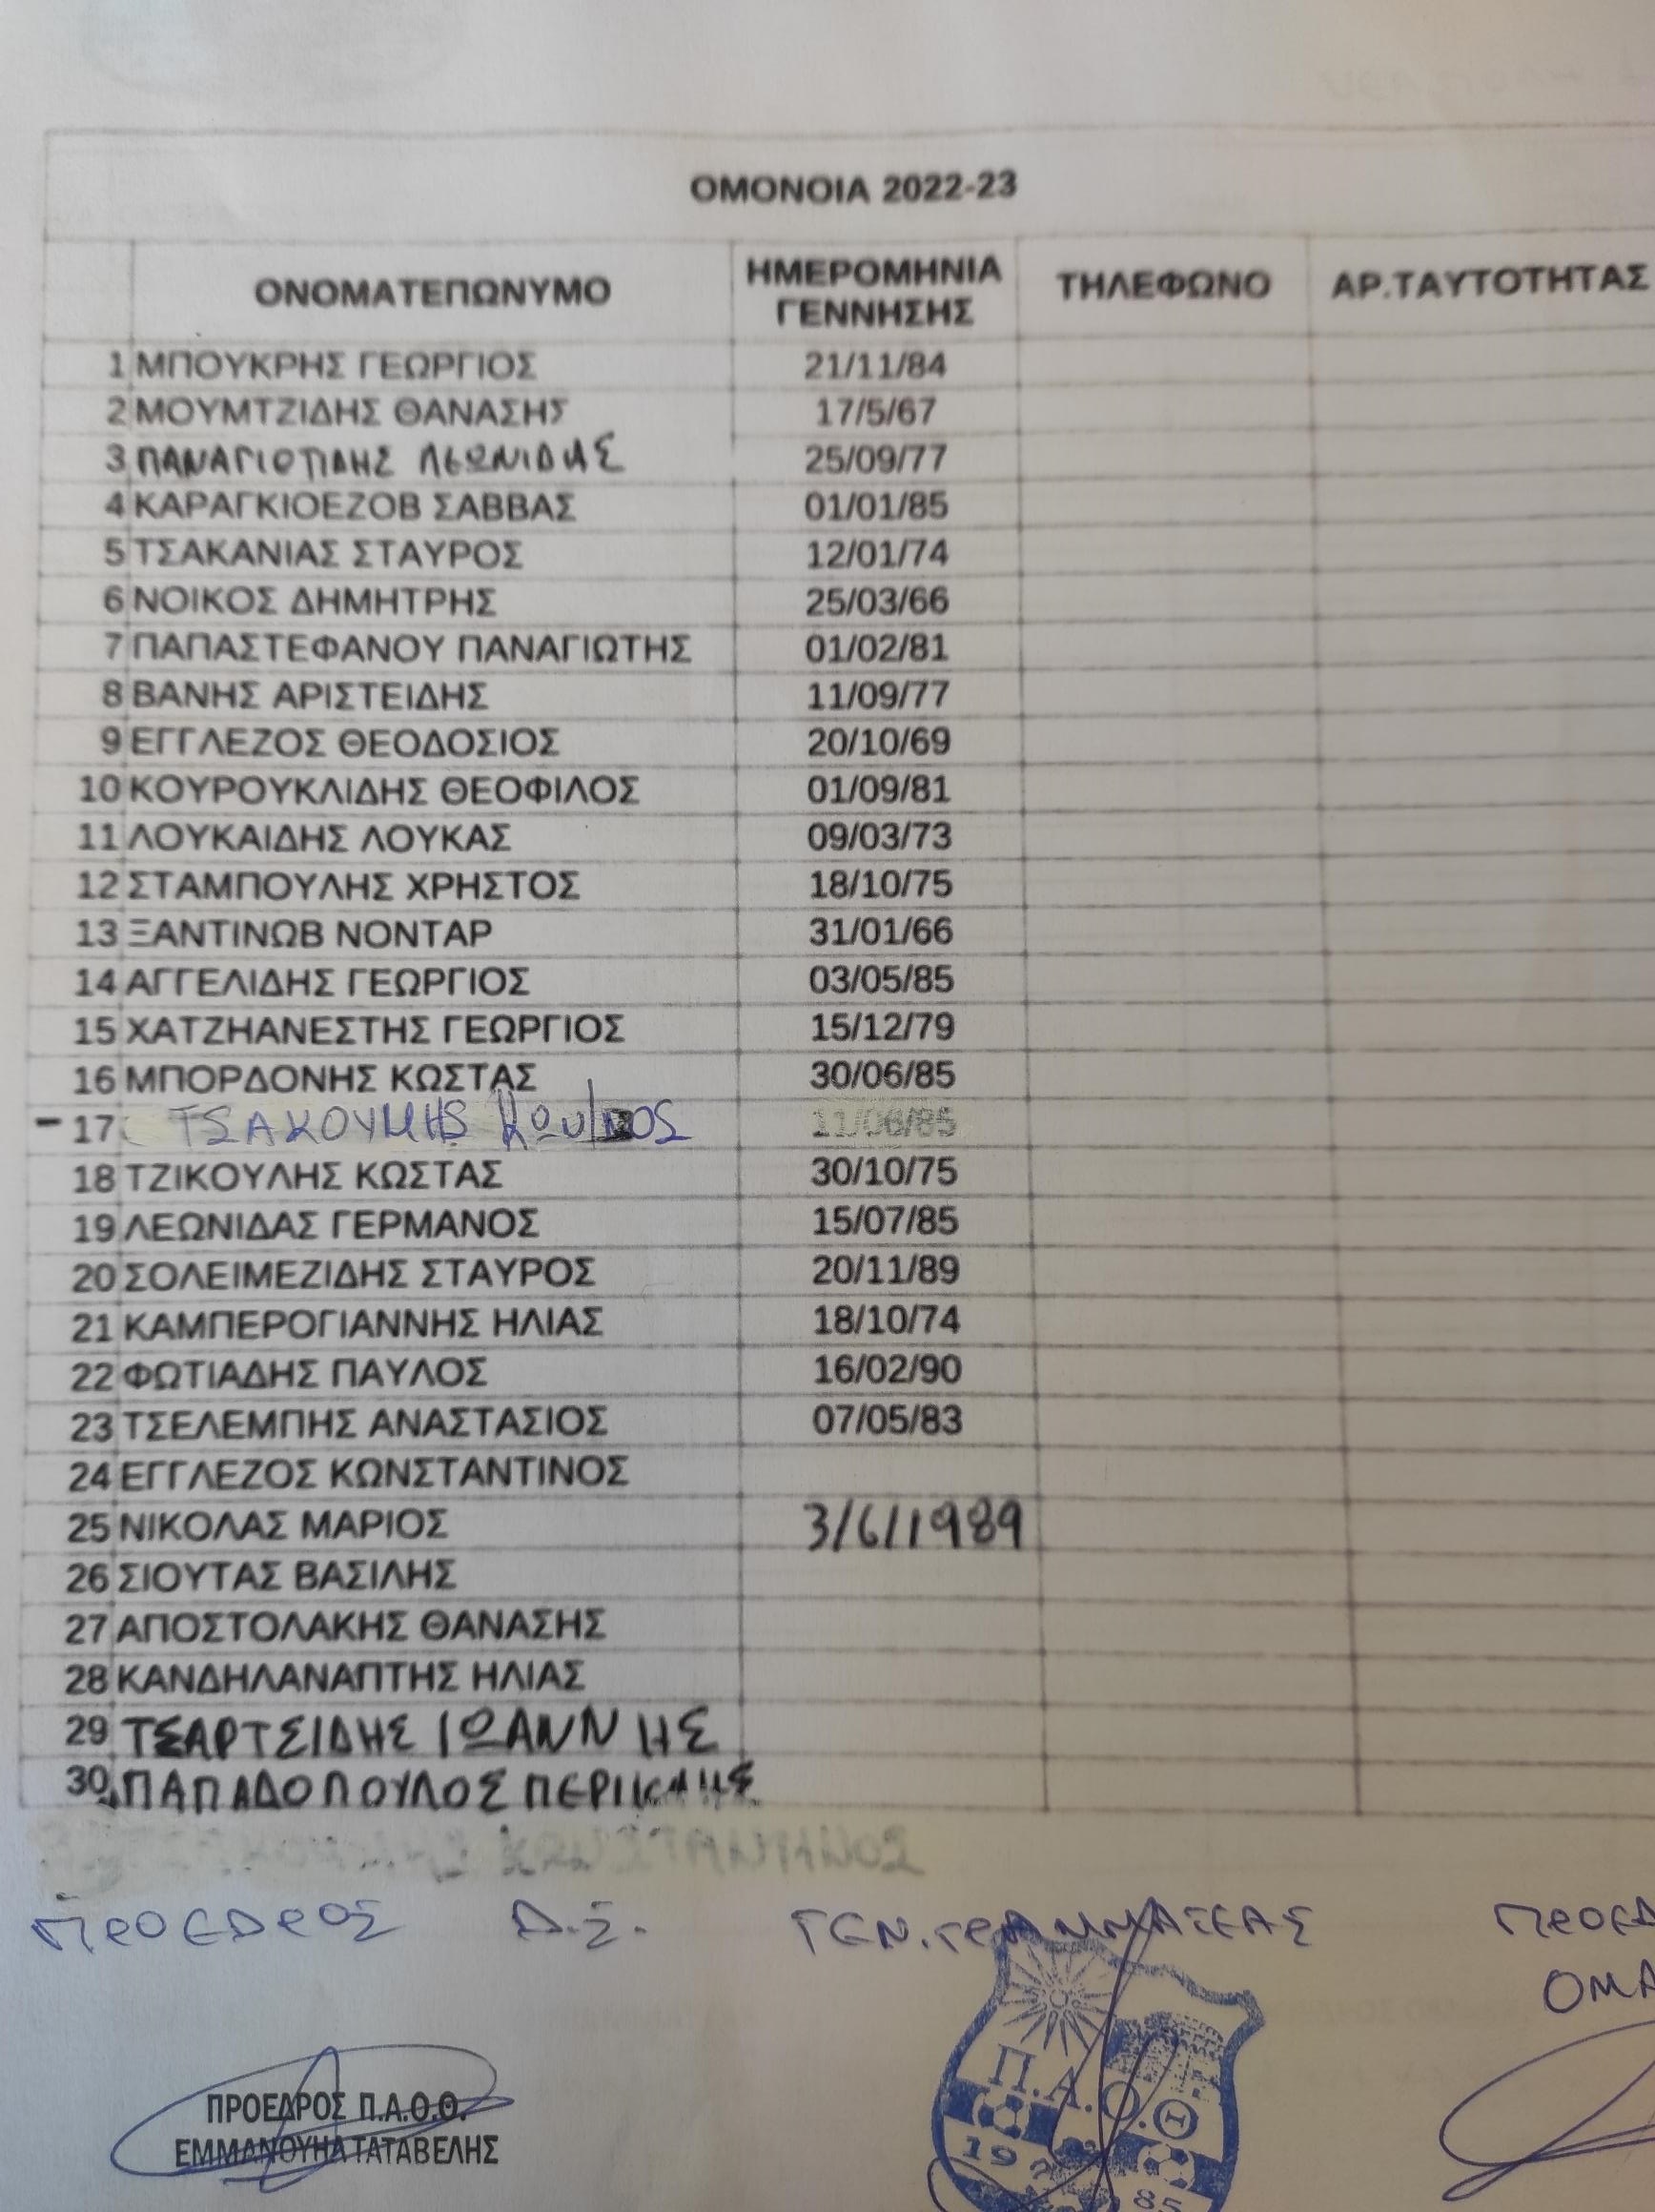 ΟΜΟΝΟΙΑ 2022-23
ΟΝΟΜΑΤΕΠΩΝΥΜΟ ΗΜΕΡΟΜΗΝΙΑ ΓΕΝΝΗΣΗΣ ΤΗΛΕΦΩΝΟ ΑΡ.ΤΑΥΤΟΤΗΤΑΣ
1 ΜΠΟΥΚΡΗΣ ΓΕΩΡΓΙΟΣ 21/11/84
2 ΜΟΥΜΤΖΙΔΗΣ ΘΑΝΑΣΗΣ 17/5/67
3 ΠΑΝΑΓΙΟΤΙΔΗΣ ΛΕΩΝΙΔΑΣ 25/09/77
4 ΚΑΡΑΓΚΙΟΕΖΟΒ ΣΑΒΒΑΣ 01/01/85
5 ΤΣΑΚΑΝΙΑΣ ΣΤΑΥΡΟΣ 12/01/74
6 ΝΟΙΚΟΣ ΔΗΜΗΤΡΗΣ 25/03/66
7 ΠΑΠΑΣΤΕΦΑΝΟΥ ΠΑΝΑΓΙΩΤΗΣ 01/02/81
8 ΒΑΝΗΣ ΑΡΙΣΤΕΙΔΗΣ 11/09/77
9 ΕΓΓΛΕΖΟΣ ΘΕΟΔΟΣΙΟΣ 20/10/69
10 ΚΟΥΡΟΥΚΛΙΔΗΣ ΘΕΟΦΙΛΟΣ 01/09/81
11 ΛΟΥΚΑΙΔΗΣ ΛΟΥΚΑΣ 09/03/73
12 ΣΤΑΜΠΟΥΛΗΣ ΧΡΗΣΤΟΣ 18/10/75
13 ΞΑΝΤΙΝΩΒ ΝΟΝΤΑΡ 31/01/66
14 ΑΓΓΕΛΙΔΗΣ ΓΕΩΡΓΙΟΣ 03/05/85
15 ΧΑΤΖΗΑΝΕΣΤΗΣ ΓΕΩΡΓΙΟΣ 15/12/79
16 ΜΠΟΡΔΟΝΗΣ ΚΩΣΤΑΣ 30/06/85
17 ΤΣΑΚΟΥΜΗΣ 11/06/85
18 ΤΖΙΚΟΥΛΗΣ ΚΩΣΤΑΣ 30/10/75
19 ΛΕΩΝΙΔΑΣ ΓΕΡΜΑΝΟΣ 15/07/85
20 ΣΟΛΕΙΜΕΖΙΔΗΣ ΣΤΑΥΡΟΣ 20/11/89
21 ΚΑΜΠΕΡΟΓΙΑΝΝΗΣ ΗΛΙΑΣ 18/10/74
22 ΦΩΤΙΑΔΗΣ ΠΑΥΛΟΣ 16/02/90
23 ΤΣΕΛΕΜΠΗΣ ΑΝΑΣΤΑΣΙΟΣ 07/05/83
24 ΕΓΓΛΕΖΟΣ ΚΩΝΣΤΑΝΤΙΝΟΣ
25 ΝΙΚΟΛΑΣ ΜΑΡΙΟΣ 3/6/1989
26 ΣΙΟΥΤΑΣ ΒΑΣΙΛΗΣ
27 ΑΠΟΣΤΟΛΑΚΗΣ ΘΑΝΑΣΗΣ
28 ΚΑΝΔΗΛΑΝΑΠΤΗΣ ΗΛΙΑΣ
29 ΤΣΑΡΤΣΙΔΗΣ ΙΩΑΝΝΗΣ
30 ΠΑΠΑΔΟΠΟΥΛΟΣ ΠΕΡΙΚΛΗΣ
ΠΡΟΕΔΡΟΣ Δ.Σ. ΓΕΝ.ΓΡΑΜΜΑΤΕΑΣ ΠΡΟΕΔ
ΟΜΑ
Π.Α.Ο.Θ
ΠΡΟΕΔΡΟΣ Π.Α.Ο.Θ.
ΕΜΜΑΝΟΥΗΛ ΤΑΤΑΒΕΛΗΣ
85